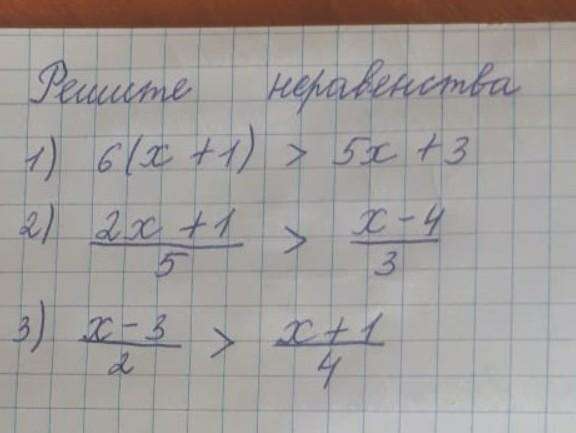 Решите неравенства
1) 6(x + 1) > 5x + 3
2) \frac{2x + 1}{5} > \frac{x - 4}{3}
3) \frac{x - 3}{2} > \frac{x + 1}{4}